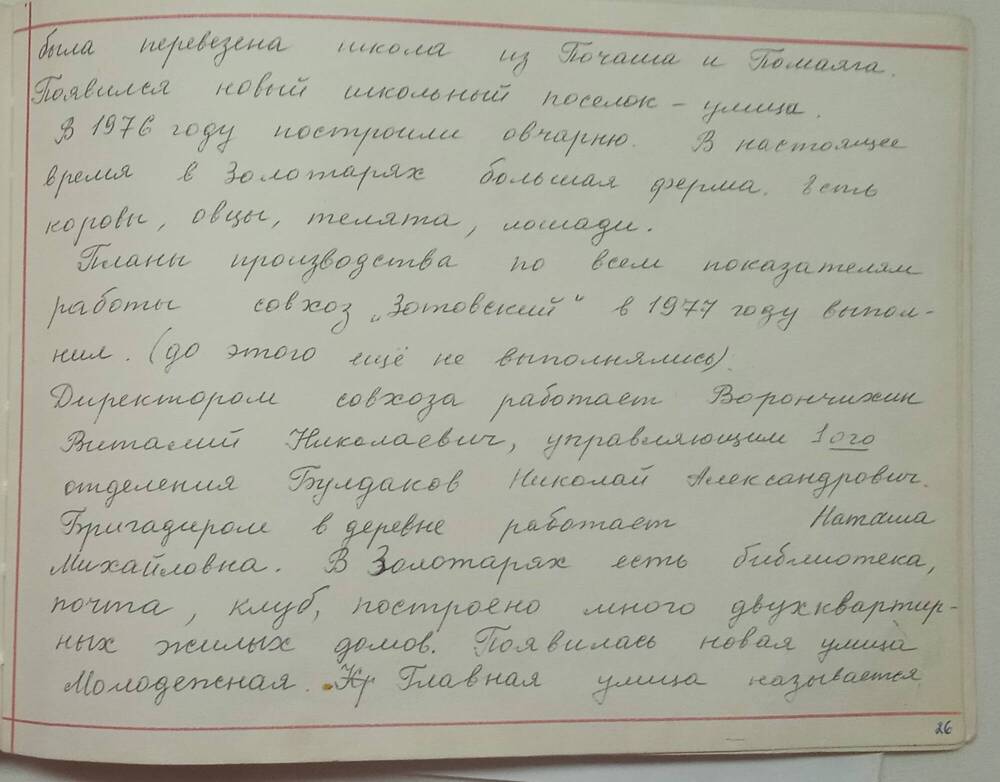 была перевезена школа из Почаша и Помаяга.
Появился новый школьный поселок – улица.
В 1976 году построили овчарню. В настоящее
время в Золотарях большая ферма. Есть
коровы, овцы, телята, лошади.
Планы производства по всем показателям
работы совхоз „Зотовский" в 1977 году выпол-
нил. (до этого ещё не выполнялись).
Директором совхоза работает Ворончихин
Виталий Николаевич, управляющим 1ого
отделения Булдаков Николай Александрович.
Бригадиром в деревне работает Наташа
Михайловна. В Золотарях есть библиотека,
почта, клуб, построено много двухквартир-
ных жилых домов. Появилась новая улица
Молодежная. Главная улица называется
26